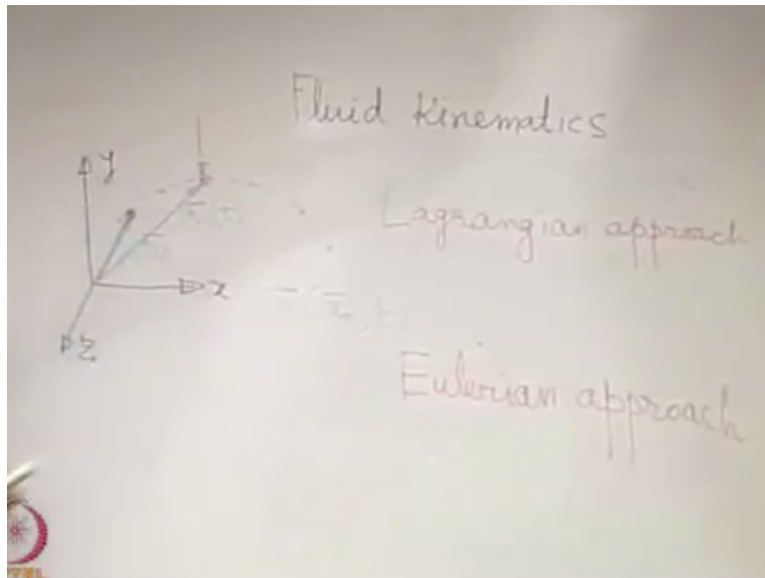 Fluid Kinematics
y
Lagrangian approach
x
z
Eulerian approach